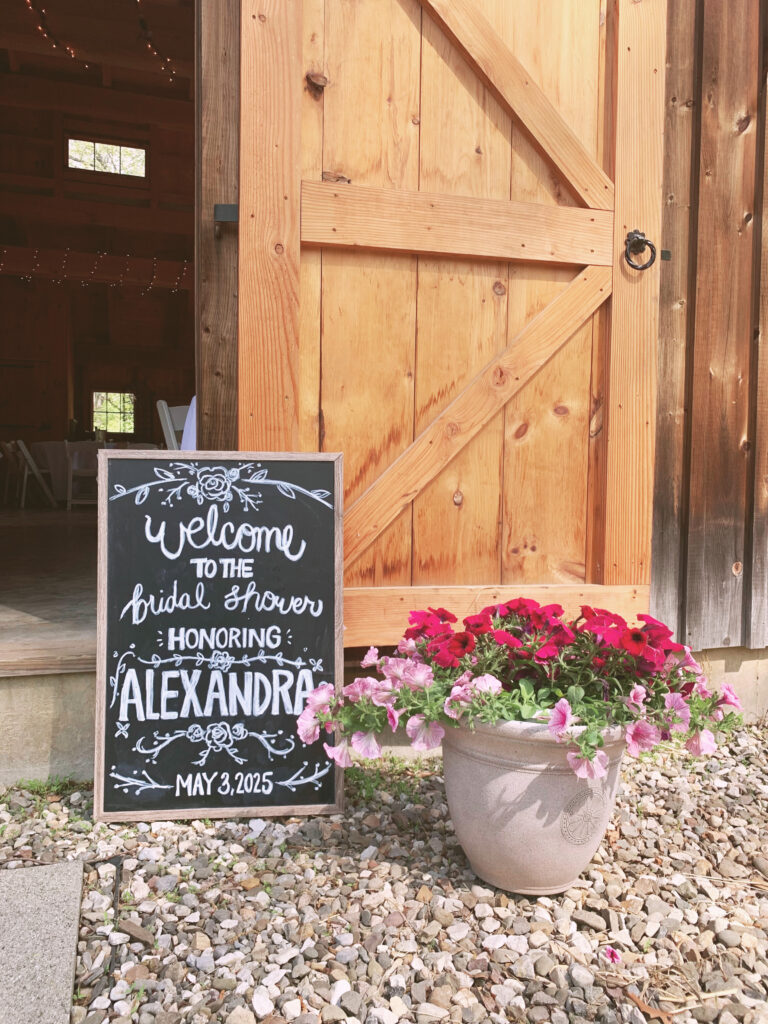 Welcome
TO THE
bridal shower
HONORING
ALEXANDRA
MAY 3, 2025